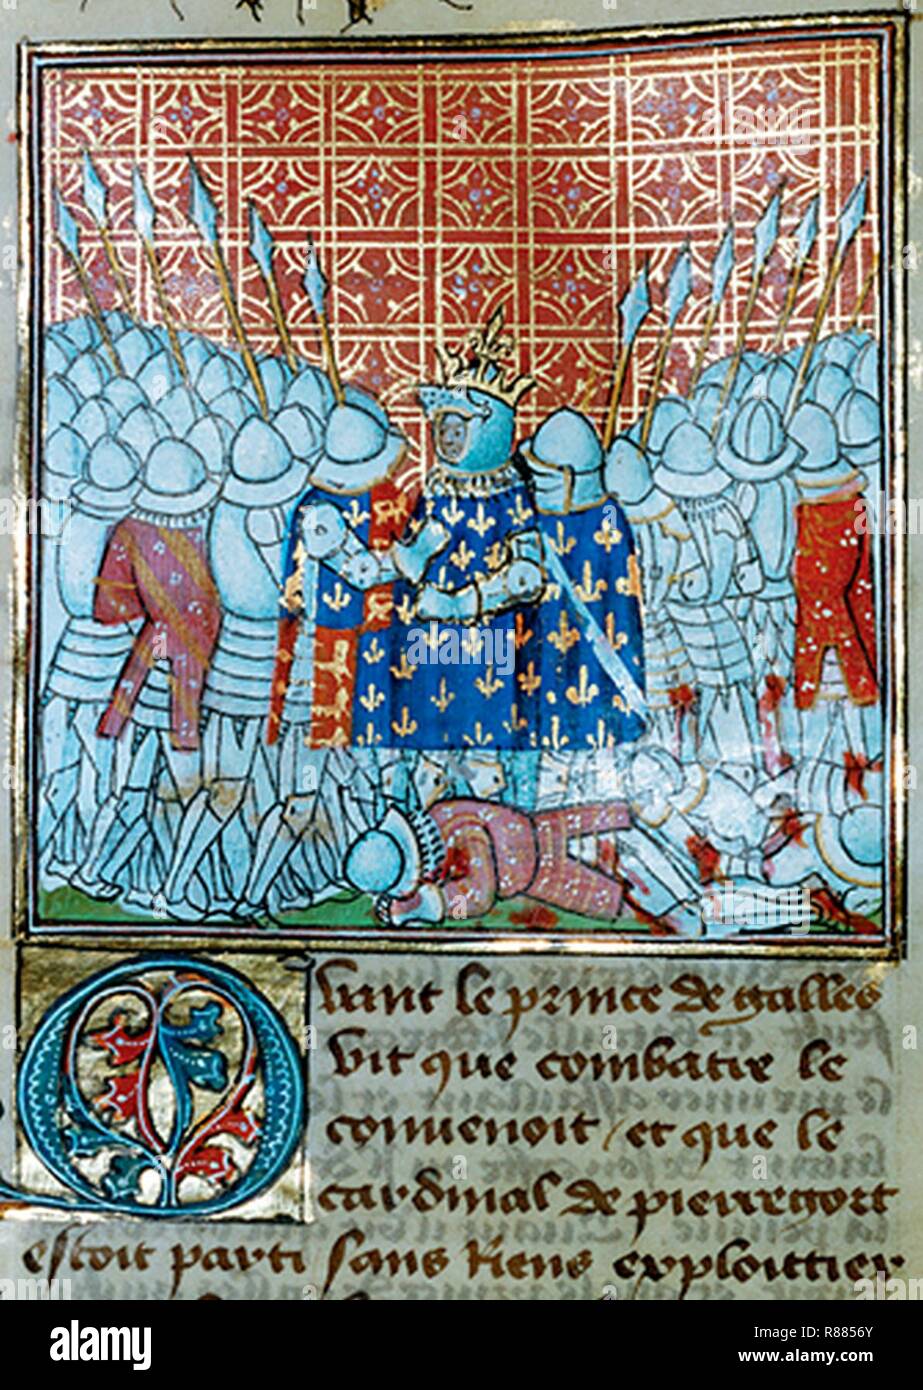 Quant le prince de galles
vit que combatre le
convenoit / et que le
cardinal de pierregort
estoit parti sans Riens exploittier
alamy
Image ID: R8856Y
www.alamy.com